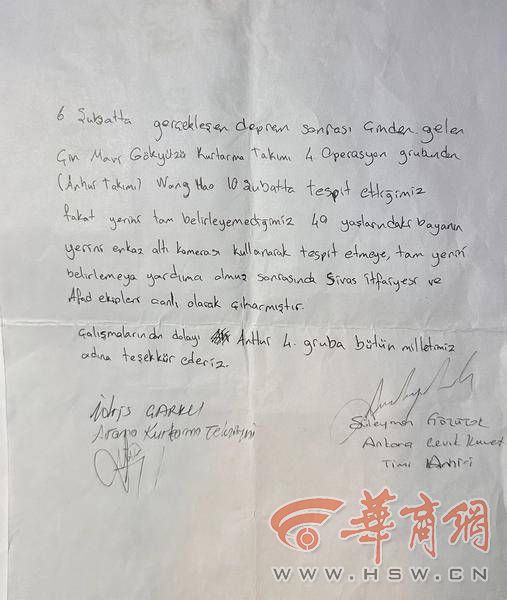 6 Şubatta gerçekleşen deprem sonrası Çinden gelen
Çin Mavi Gökyüzü Kurtarma Takımı 4. Operasyon grubundan
(Anhui Takımı) Wang Hao 10 Şubatta tespit ettiğimiz
fakat yerini tam belirleyemediğimiz 40 yaşlarındaki bayanın
yerini enkaz altı kamerası kullanarak tespit etmeye, tam yerini
belirlemeye yardımcı olmuş sonrasında Sivas itfaiyesi ve
Afad ekipleri canlı olarak çıkarmıştır.
Çalışmalarından dolayı Anhui 4. gruba bütün milletimiz
adına teşekkür ederiz.
İdris
Arama Kurtarma Teknisyeni
Süleyman
Ankara Çevik Kuvvet
Timi Amiri
華商網
WWW.HSW.CN